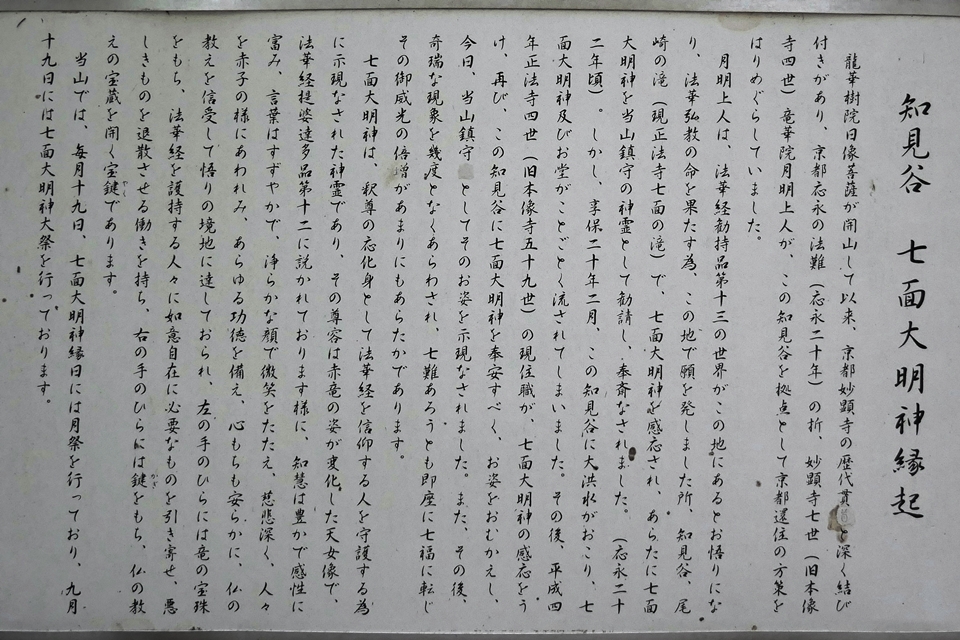 知見谷 七面大明神縁起
龍華樹院日像菩薩が開山して以来、京都妙顕寺の歴代貫と深く結び
付きがあり、京都応永の法難(応永二十年)の折、妙顕寺七世(旧本像
寺四世)竜華院月明上人が、この知見谷を拠点として京都還住の方策を
はりめぐらしていました。
月明上人は、法華経勧持品第十三の世界がこの地にあるとお悟りにな
り、法華弘教の命を果たす為、この地で願を発しました所、知見谷、尾
崎の滝(現正法寺七面の滝)で、七面大明神を感応され、あらたに七面
大明神を当山鎮守の神霊として勧請し、奉斎なされました。(応永二十
二年頃)。しかし、享保二十年二月、この知見谷に大洪水がおこり、七
面大明神及びお堂がことごとく流されてしまいました。その後、平成四
年正法寺四世(旧本像寺五十九世)の現住職が、七面大明神の感応をう
け、再び、この知見谷に七面大明神を奉安すべく、お姿をおむかえし、
今日、当山鎮守としてそのお姿を示現なされました。また、その後、
奇瑞な現象を幾度となくあらわされ、七難あろうとも即座に七福に転じ
その御威光の倍増があまりにもあらたかであります。
七面大明神は、釈尊の応化身として法華経を信仰する人を守護する為
に示現なされた神霊であり、その尊容は赤竜の姿が変化した天女像で、
法華経提婆達多品第十二に説かれております様に、知慧は豊かで感性に
富み、言葉はすずやかで、浄らかな顔で微笑をたたえ、慈悲深く、人々
を赤子の様にあわれみ、あらゆる功徳を備え、心もちも安らかに、仏の
教えを信受して悟りの境地に達しておられ、左の手のひらには竜の宝珠
をもち、法華経を護持する人々に如意自在に必要なものを引き寄せ、悪
しきものを退散させる働きを持ち、右の手のひらには鍵をもち、仏の教
えの宝蔵を開く宝鍵であります。
当山では、毎月十九日、七面大明神縁日には月祭を行っており、九月
十九日には七面大明神大祭を行っております。